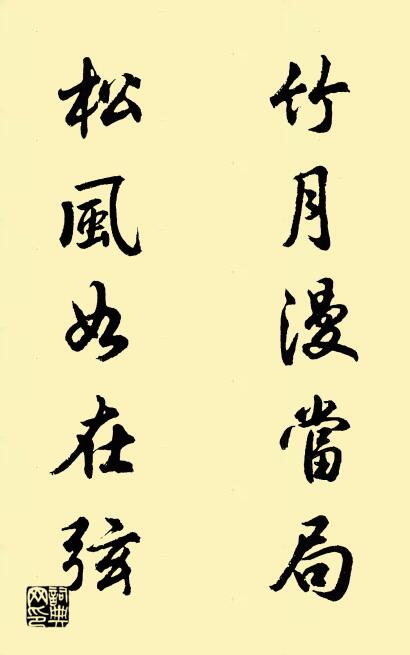 竹月漫當局
松風如在弦